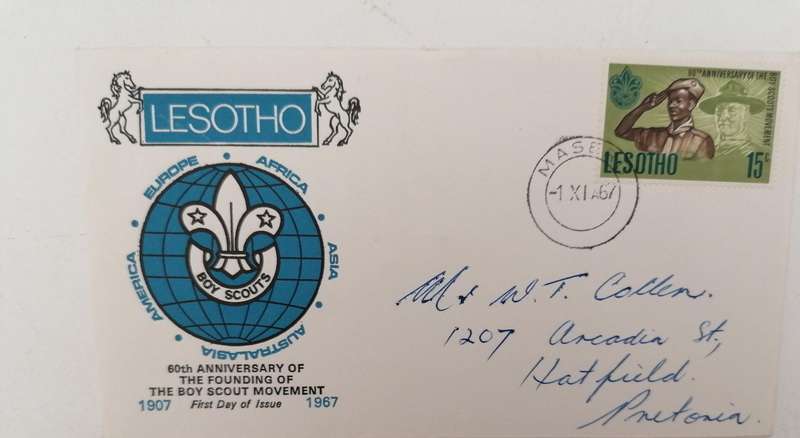 LESOTHO
EUROPE • AFRICA
AMERICA
ASIA
AUSTRALASIA
BOY SCOUTS
60th ANNIVERSARY OF
THE FOUNDING OF
THE BOY SCOUT MOVEMENT
1907 First Day of Issue 1967
60TH ANNIVERSARY OF THE BOY SCOUTS MOVEMENT
LESOTHO 15
MASE
-1 XI 67
Mr W. T. Collen.
1207 Arcadia St.,
Hatfield.
Pretoria.